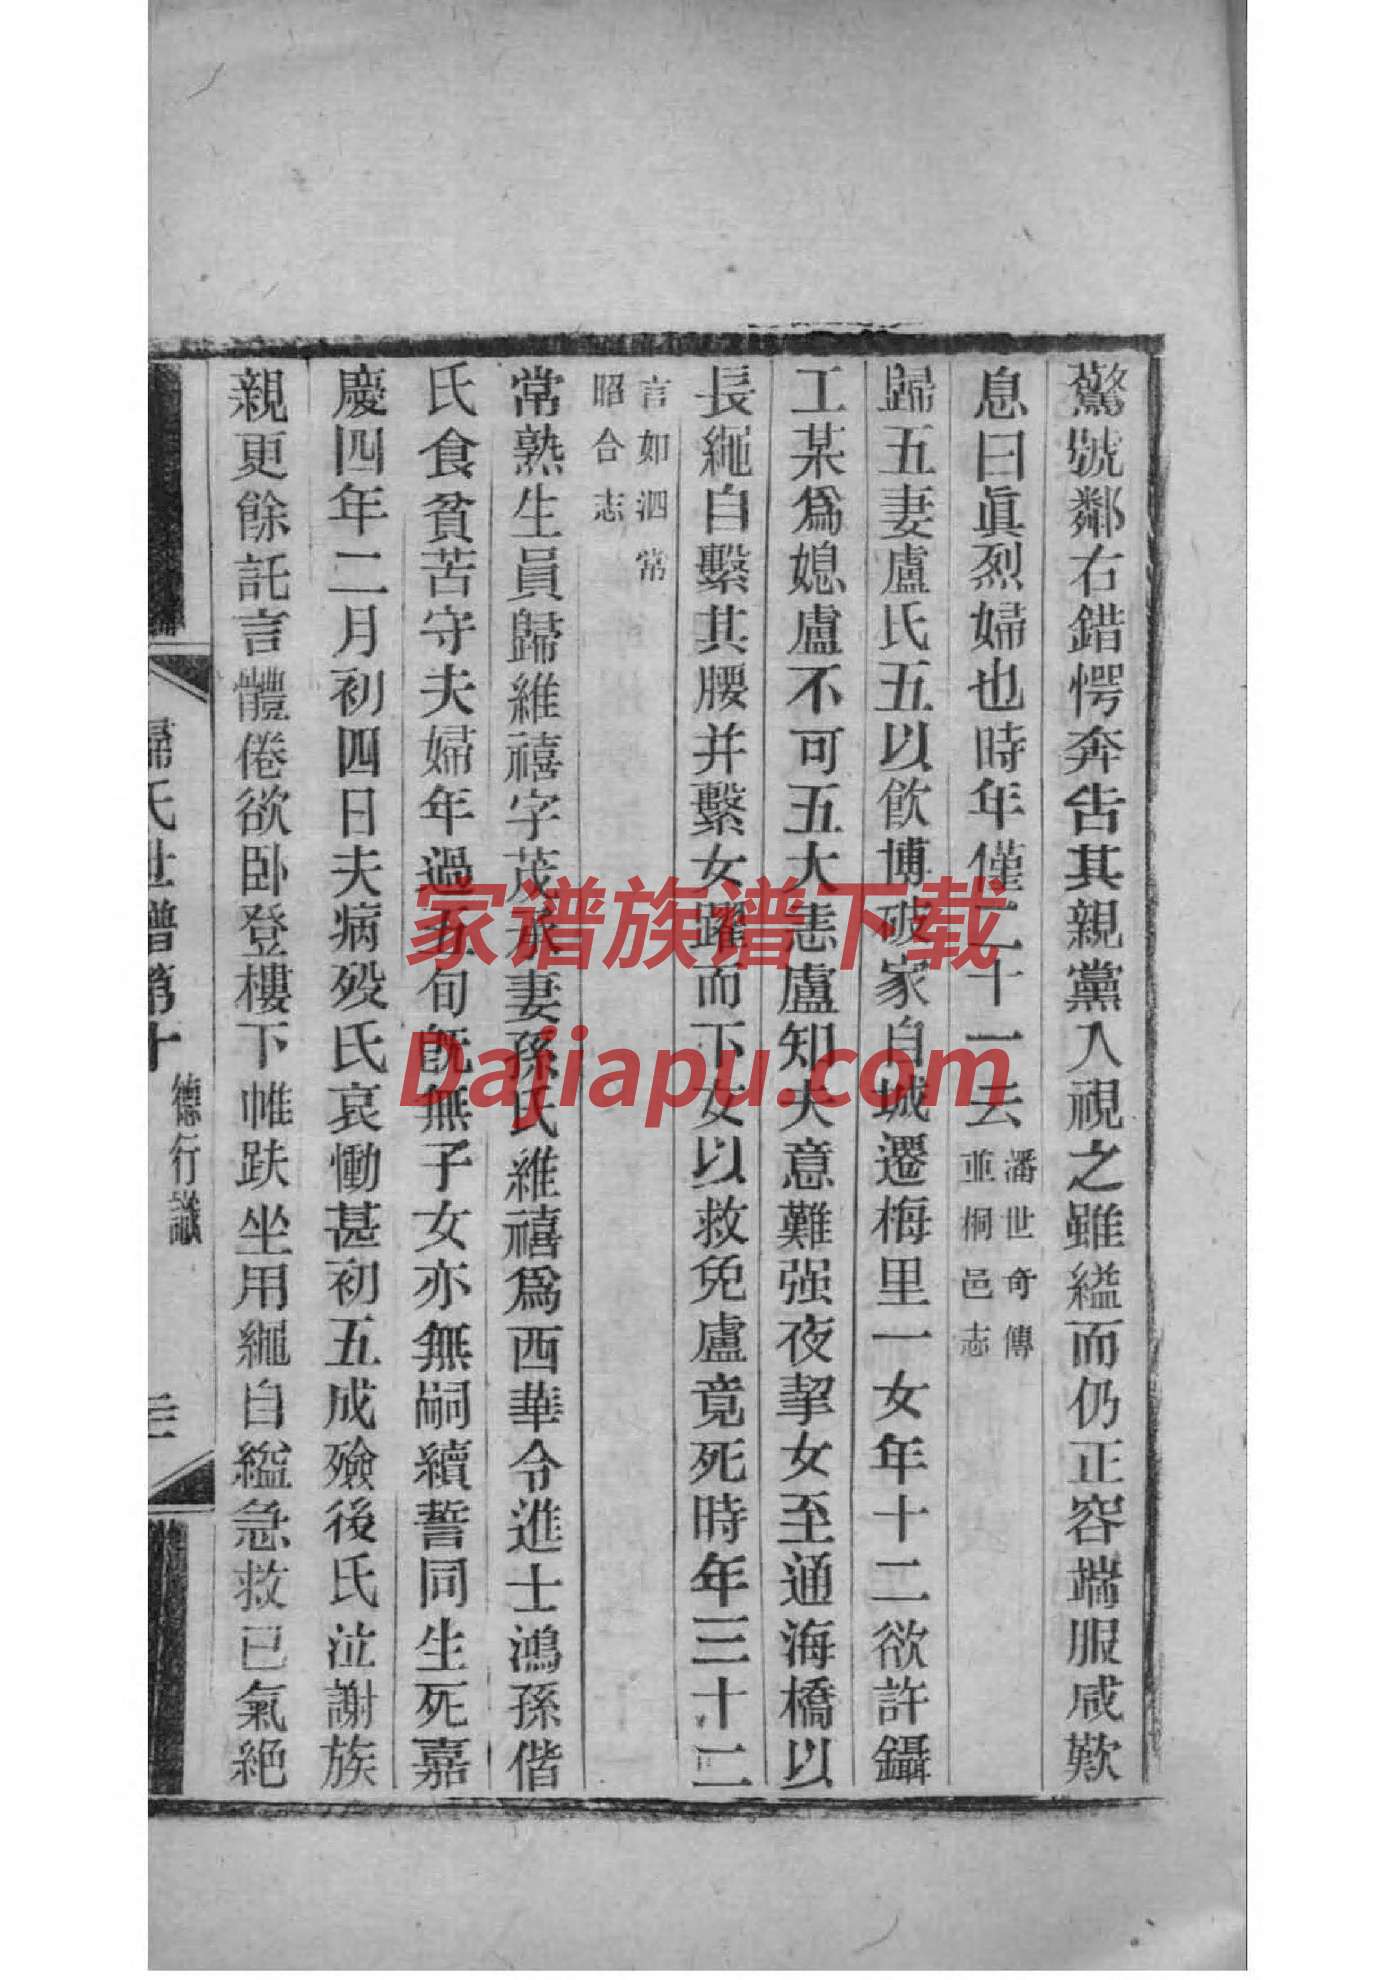 驚號鄰右錯愕奔告其親黨入視之雖縊而仍正容端服咸歎
息曰眞烈婦也時年僅二十一云
潘世奇傳
並桐邑志
歸五妻盧氏五以飮博破家自城遷梅里一女年十二欲許鑷
工某爲媳盧不可五大恚盧知夫意難强夜挈女至通海橋以
長繩自繫其腰并繫女躍而下女以救免盧竟死時年三十二
言如泗常
昭合志
常熟生員歸維禧字茂承妻孫氏維禧爲西華令進士鴻孫偕
氏食貧苦守夫婦年過五旬旣無子女亦無嗣續誓同生死嘉
慶四年二月初四日夫病歿氏哀慟甚初五成殮後氏泣謝族
親更餘託言體倦欲卧登樓下帷趺坐用繩自縊急救已氣絕
歸氏世譜第十
德行識
三
家谱族谱下载
Dajiapu.com